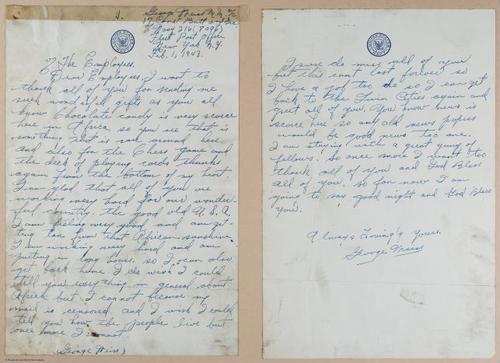 George Weiss
Fleet Post Office
New York N.Y.
Feb. 1, 1943.
To The Employees.
Dear Employees, I want to
thank all of you for sending me
such wonderful gifts as you all
know Chocolate candy is very scarce
here in Africa so you see that is
something that is rare around here
and also for the Chess game and
the deck of playing cards thanks
again from the bottom of my heart
I am glad that all of you are
working very hard for our wonder-
ful country. the good old U.S.A.
I am feeling very good and am get-
ting tan from that African sunshine.
I am working very hard and am
putting in long hours. so I can also
get back home. I do wish I could
tell you everything in general about
Africa but I cannot because my
mail is censored. and I wish I could
tell you how the peoples live but
once more I cannot.
(George Weiss)
I sure do miss all of you
but this cant last forever so
I have a job too do so I can get
back to the Twin Cities again and
greet all of you. You know news is
scarce here so any old news papers
would be good news too me.
I am staying with a great gang of
fellows. So once more I want too
thank all of you and God Bless
all of you. so for now I am
going to say good night and God Bless
you.
Always Loving'y Yours,
George Weiss